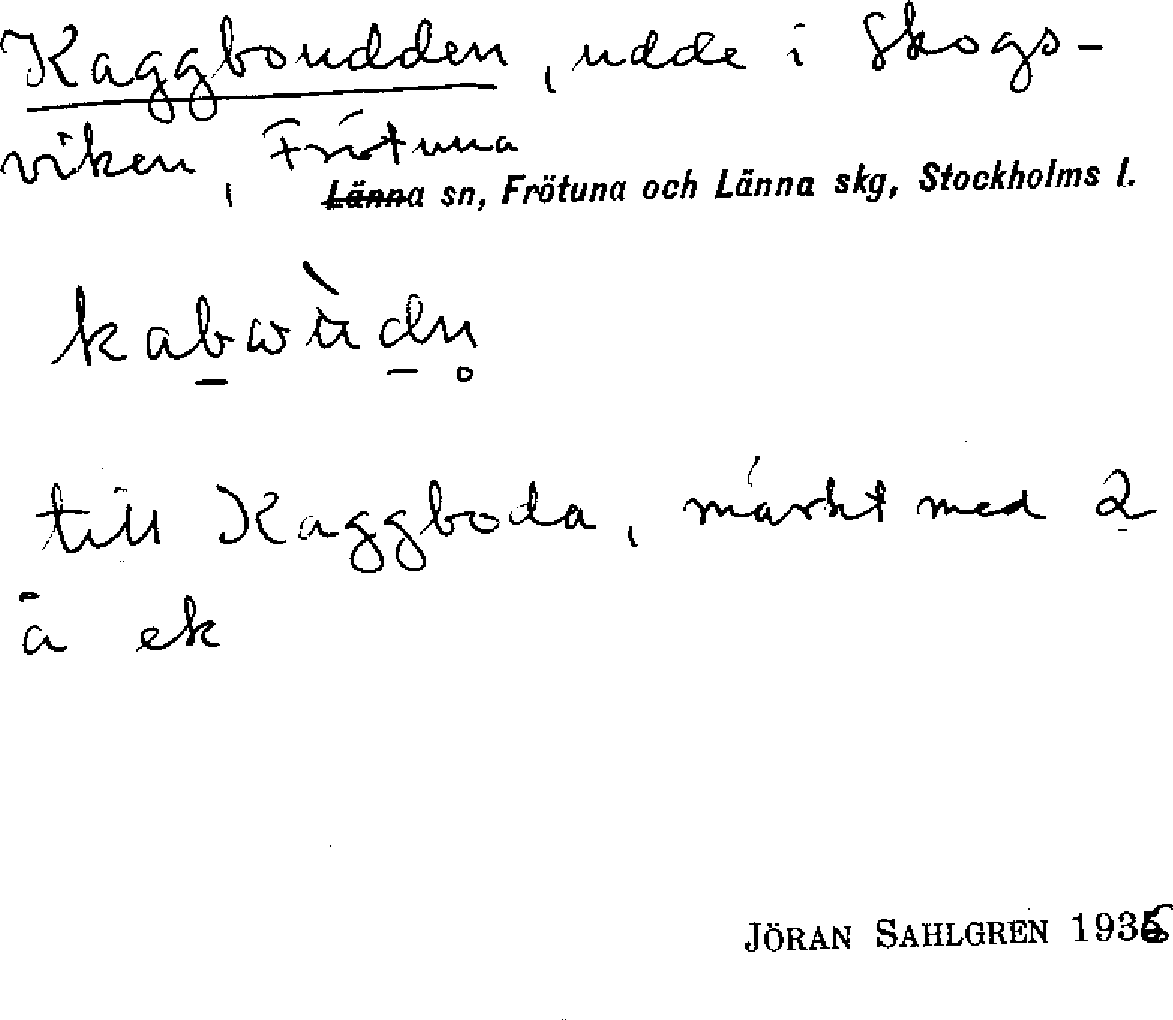 Kaggboudden, udde i Skogs-
viken, Frötuna
Länna sn, Frötuna och Länna skg, Stockholms l.
kabωùdn̥
till Kaggboda, märkt med 2
å ek
JÖRAN SAHLGREN 1936